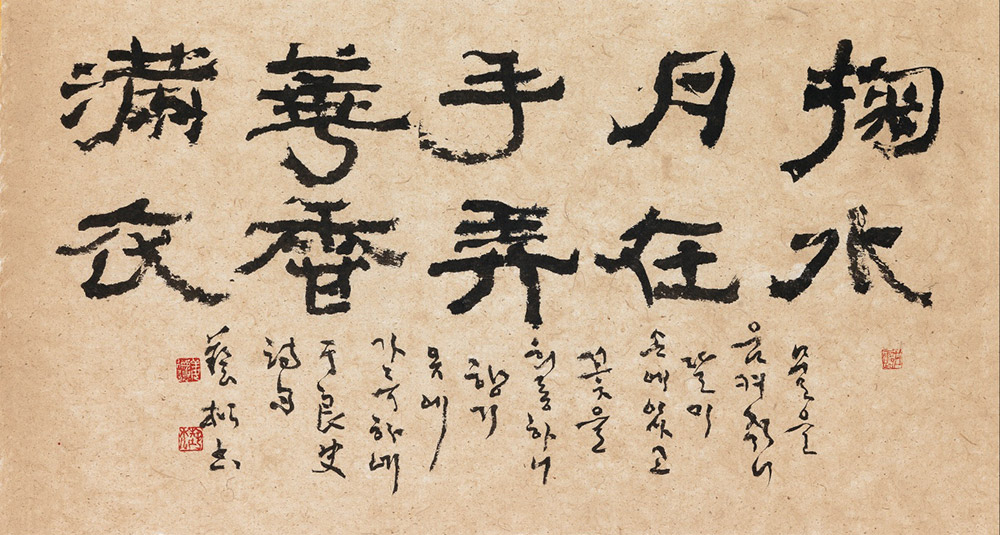 掬水
月在
手弄
華香
滿衣
물을
움켜쥐니
달이
손에 있고
꽃을
희롱하니
향기
옷에
가득하네
于良史
詩句
藝松書